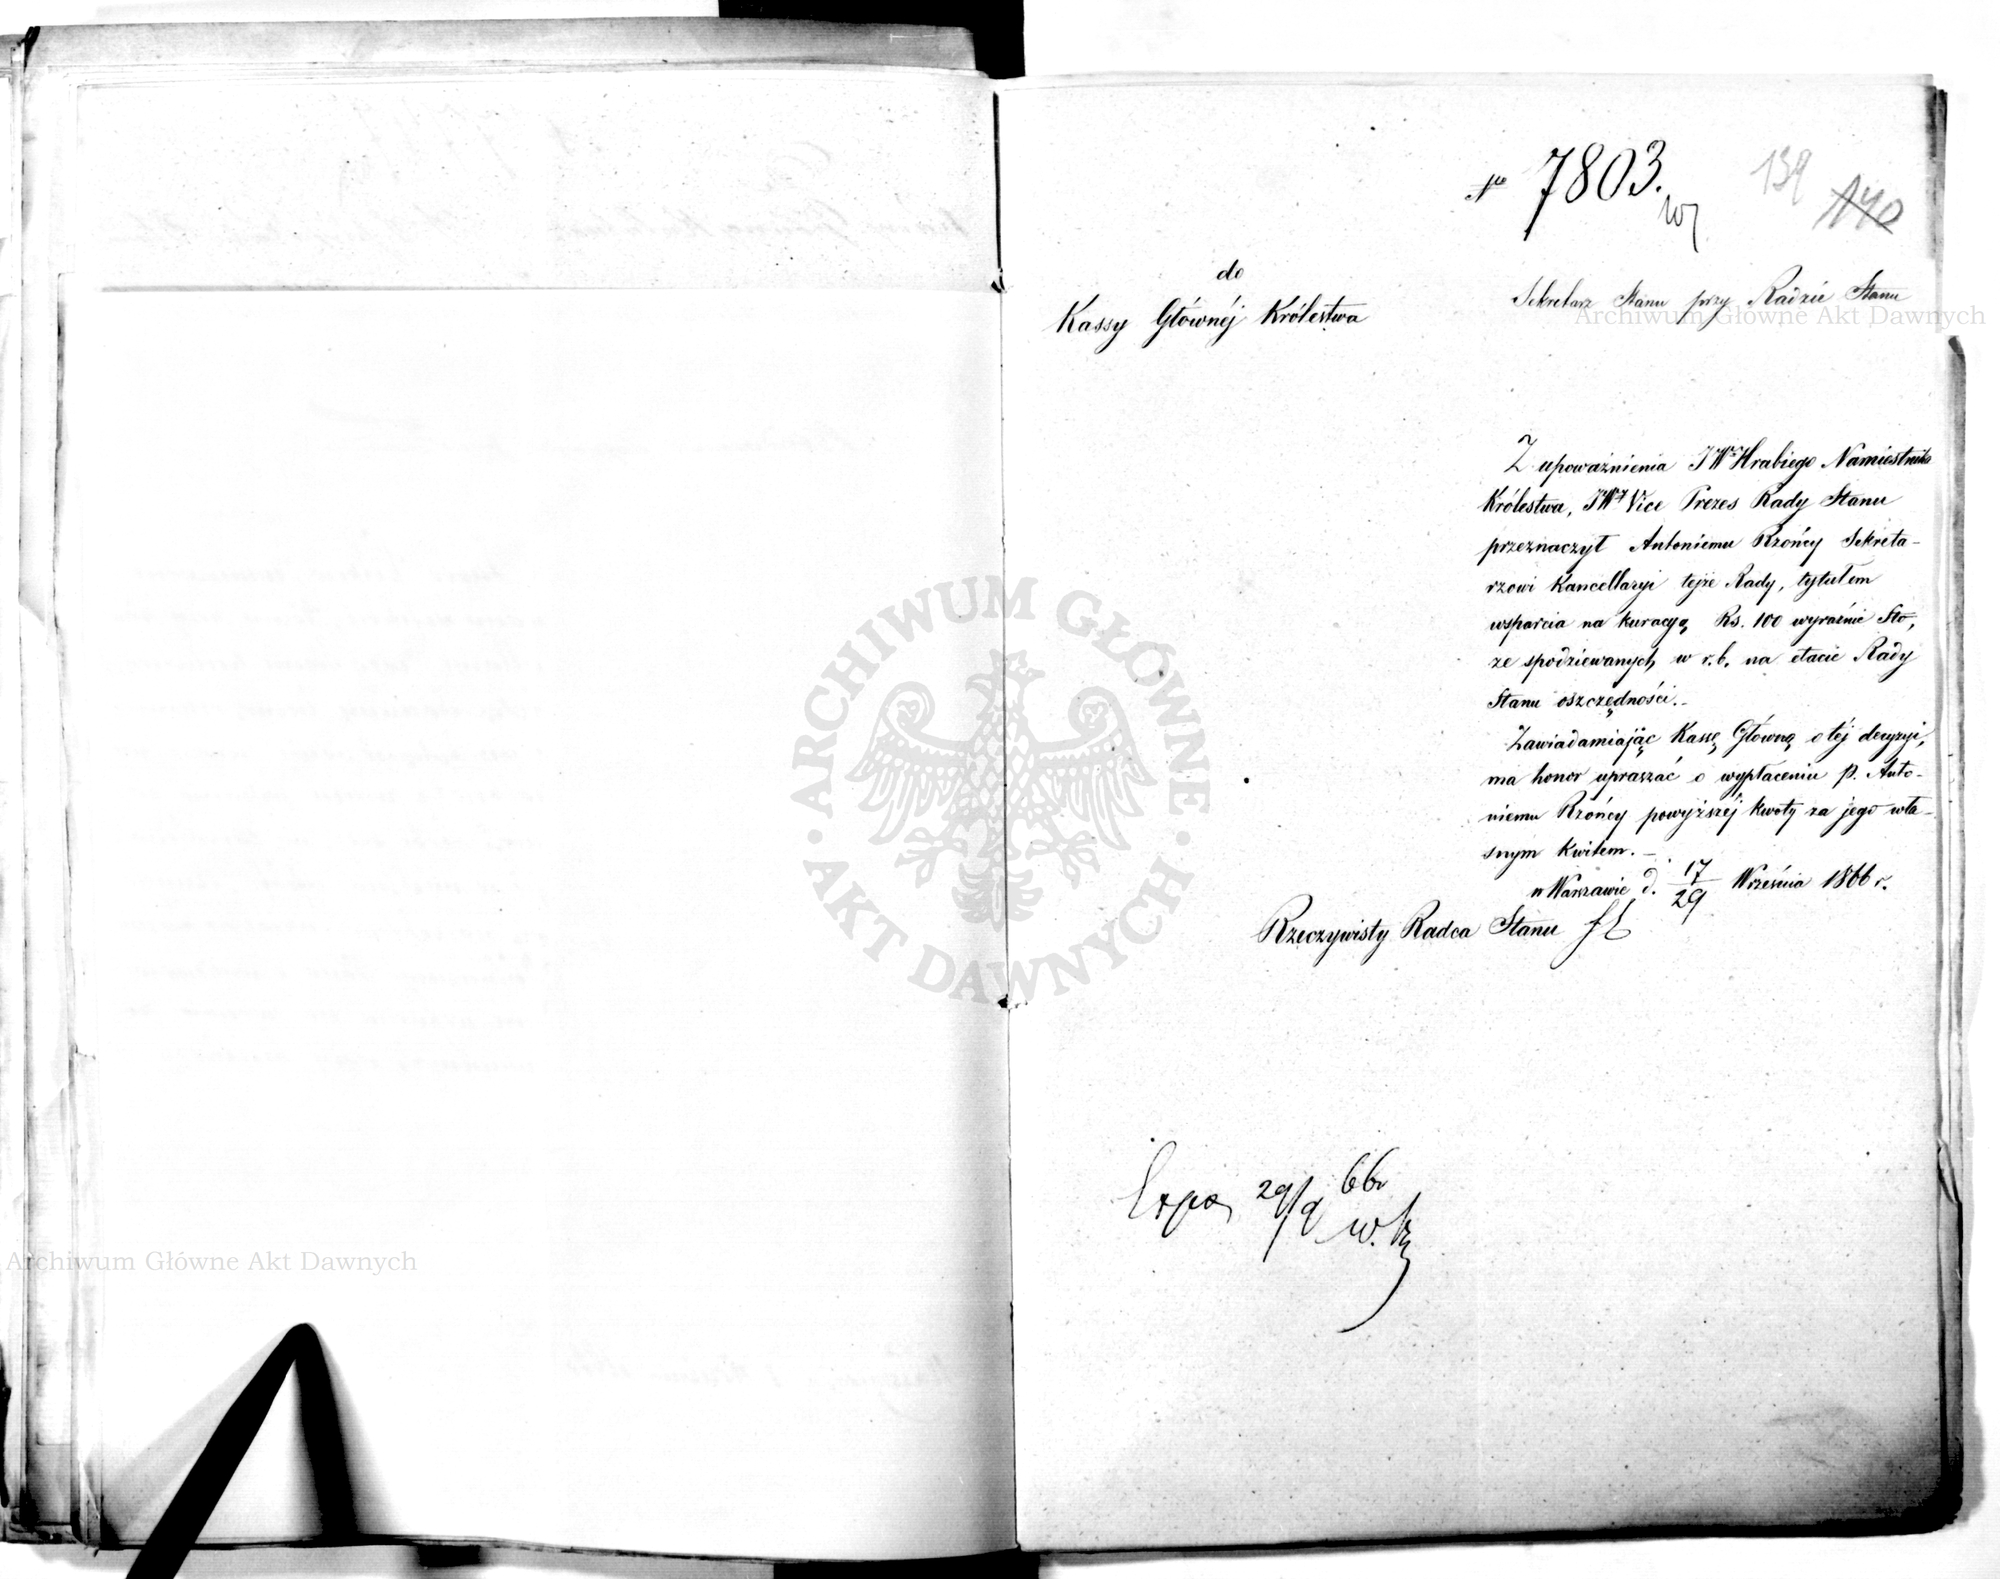 № 7803.
139
140
do
Kassy Głównéj Królestwa
Sekretarz Stanu przy Radzie Stanu
Archiwum Główne Akt Dawnych
Z upoważnienia JW Hrabiego Namiestnika
Królestwa, JW Vice Prezes Rady Stanu
przeznaczył Antoniemu Rzońcy Sekreta-
rzowi Kancellaryi tejże Rady, tytułem
wsparcia na kuracyą Rs. 100 wyraźnie Sto,
ze spodziewanych w r. b. na etacie Rady
Stanu oszczędności.-
Zawiadamiając Kassę Główną o téj decyzyi,
ma honor upraszać o wypłacenie p. Anto-
niemu Rzońcy powyższéj kwoty za jego wła-
snym kwitem.-
w Warszawie d. 17/29 Września 1866 r.
Rzeczywisty Radca Stanu
ARCHIWUM GŁÓWNE
AKT DAWNYCH
29/9 66
Archiwum Główne Akt Dawnych